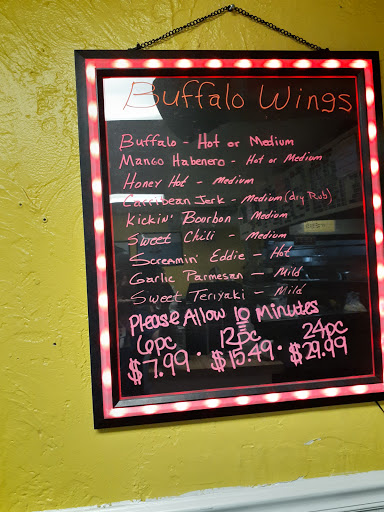 Buffalo Wings
Buffalo - Hot or Medium
Mango Habenero - Hot or Medium
Honey Hot - Medium
Carribean Jerk - Medium (dry Rub)
Kickin' Bourbon - Medium
Sweet Chili - Medium
Screamin' Eddie - Hot
Garlic Parmesan - Mild
Sweet Teriyaki - Mild
Please Allow 10 Minutes
6pc 12pc 24pc
$7.99 · $15.49 · $29.99